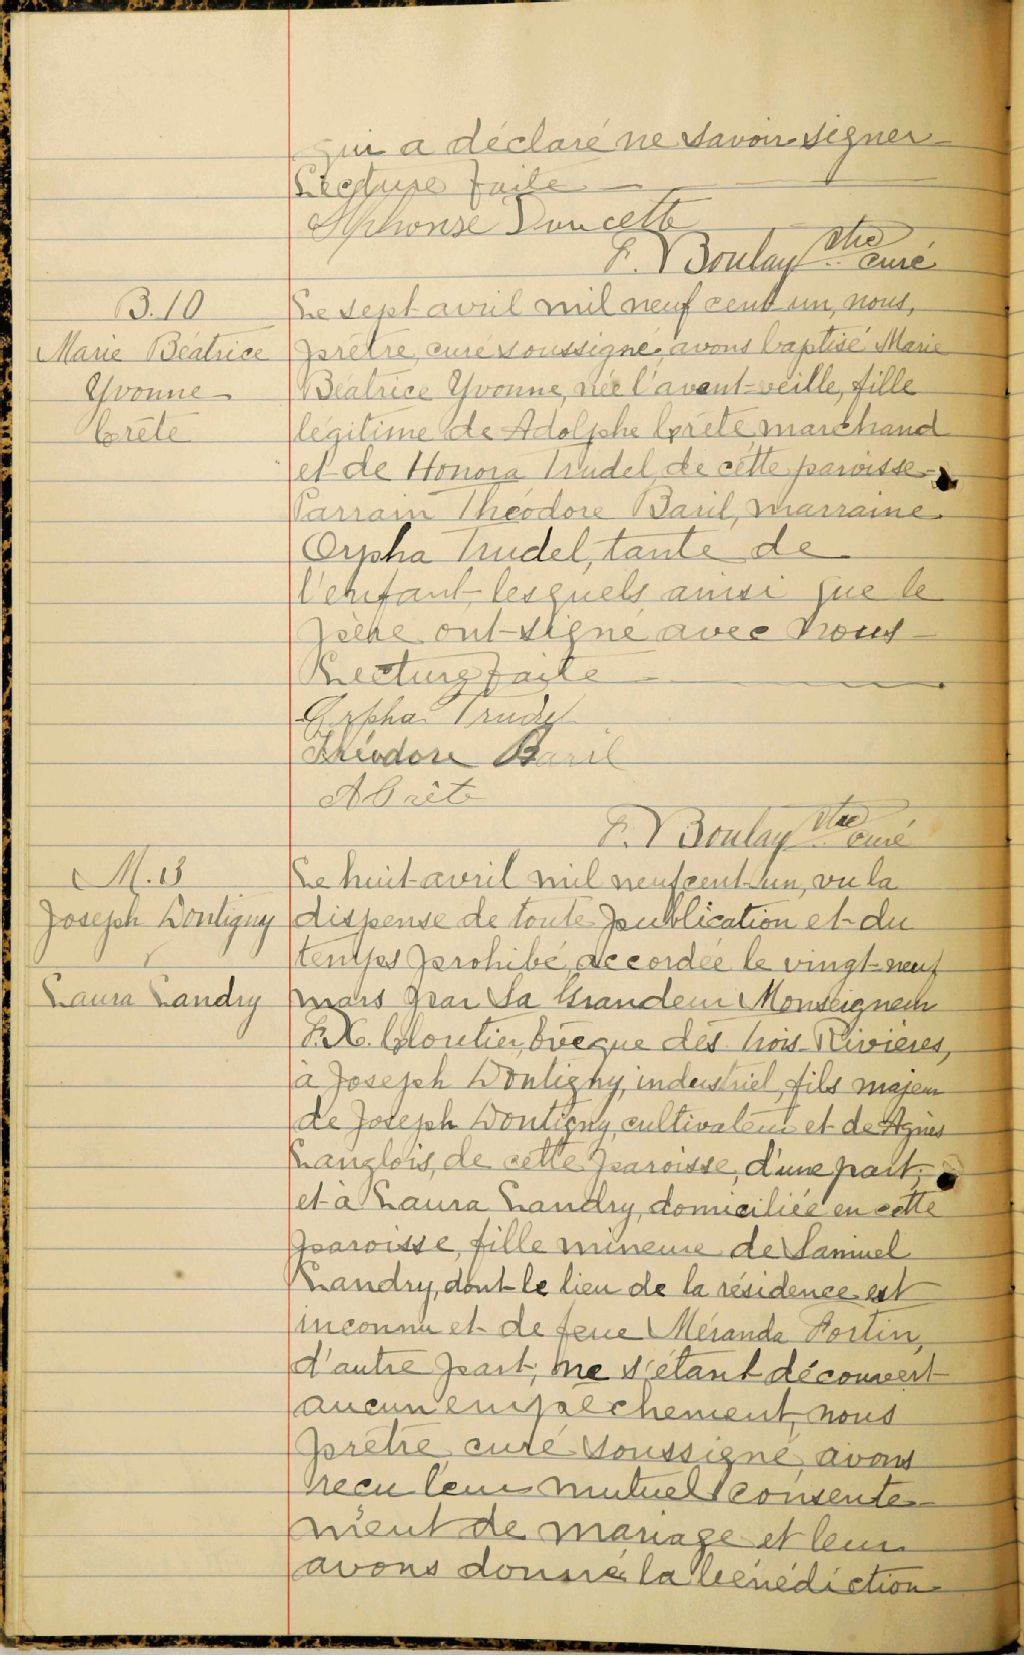 qui a déclaré ne savoir signer -
Lecture faite —
Alphonse Doucette
F. Boulay ptre curé
B. 10
Marie Béatrice
Yvonne
Crête
Le sept avril mil neuf cent un, nous,
prêtre, curé soussigné, avons baptisé Marie
Béatrice Yvonne, née l'avant-veille, fille
légitime de Adolphe Crête, marchand
et de Honora Trudel, de cette paroisse -
Parrain Théodore Baril, marraine
Orpha Trudel, tante de
l'enfant, lesquels ainsi que le
père ont signé avec nous -
Lecture faite —
Orpha Trudel
Théodore Baril
A Crête
F. Boulay ptre curé
M. 13
Joseph Dontigny
Laura Landry
Le huit avril mil neuf cent un, vu la
dispense de toute publication et du
temps prohibé accordée le vingt-neuf
mars par Sa Grandeur Monseigneur
F. X. Cloutier, Évêque des Trois-Rivières,
à Joseph Dontigny, industriel, fils majeur
de Joseph Dontigny, cultivateur et de Agnès
Langlois, de cette paroisse, d'une part;
et à Laura Landry, domiciliée en cette
paroisse, fille mineure de Samuel
Landry, dont le lieu de la résidence est
inconnu et de feue Méranda Fortin,
d'autre part; ne s'étant découvert
aucun empêchement, nous
prêtre, curé soussigné, avons
reçu leur mutuel consente-
ment de mariage et leur
avons donné la bénédiction